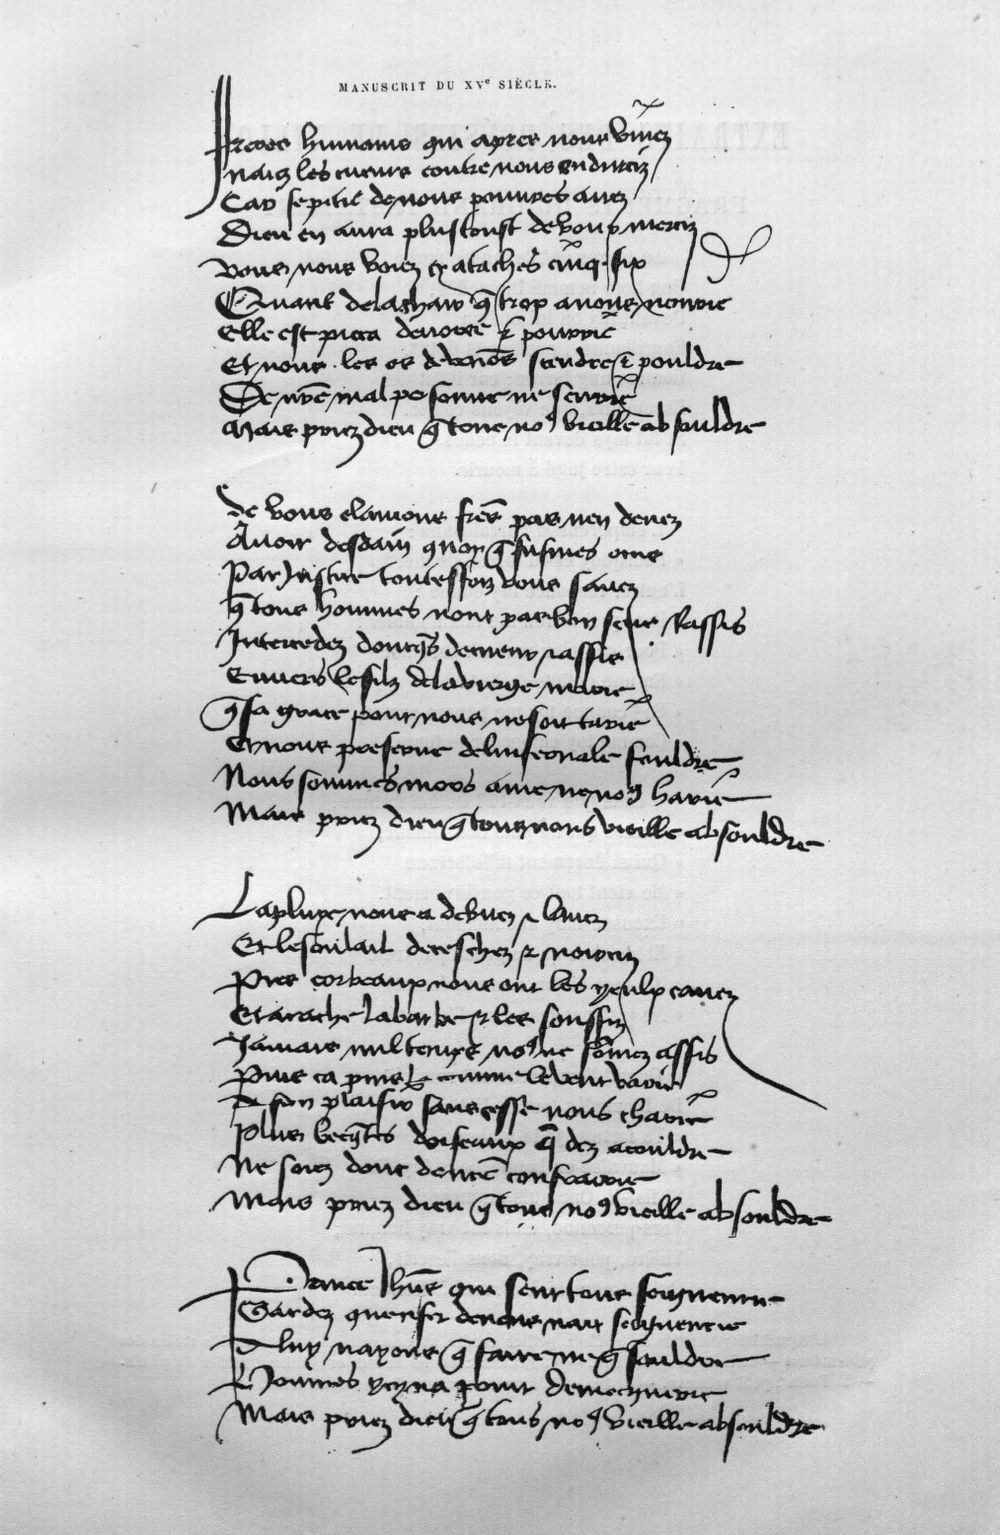 MANUSCRIT DU XVe SIÈCLE.
Freres humains qui apres nous vivez
Naiez les cueurs contre nous endurciz
Car se pitié de nous pouvres avez
Dieu en aura plus toust de vous merciz
Vous nous voiez cy atachés cinq six
Quant de la char q̃ trop avons nourie
Elle est pieca devoree et pourrie
Et nous les os devenõs cendre et pouldre
De nr̃e mal personne ne sen rie
Mais priez dieu q̃ tous no9 vueille absouldre
Se vous clamons freres pas nen devez
Avoir desdaing quoy q̃ fusmes occis
Par justice touteffoiz vous savez
Q̃ tous hommes nont pas bon sens Rassis
Intercedez doncq̃s de cueur rassis
Envers le filz de la vierge marie
Q̃ sa grace pour nous ne soit tarie
Et nous preserve de linfernale fouldre
Nous sommes mors ame ne no9 harie
Mais priez dieu q̃ tous nous vueille absouldre
La pluye nous a debuez et lavez
Et le soulail deceschez et noirciz
Pies corbeaux nous ont les yeulx cavez
Et arache la barbe et les soursilz
Jamais nul temps no9 ne sõmez assis
Puis ca puis la comme le vent varie
A son plaisir sans cesse nous charie
Plus becq̃tés doiseaux q̃ dez a couldre
Ne soiez donc de nr̃e confrarie
Mais priez dieu q̃ tous no9 vueille absouldre
Prince Jhũs qui seur tous seigneurie
Gardez quenfer de nous nait seigneurie
A luy nayons q̃ faire ne q̃ souldre
Hommes ycy na point de mocquerie
Mais priez dieu q̃ tous no9 vueille absouldre